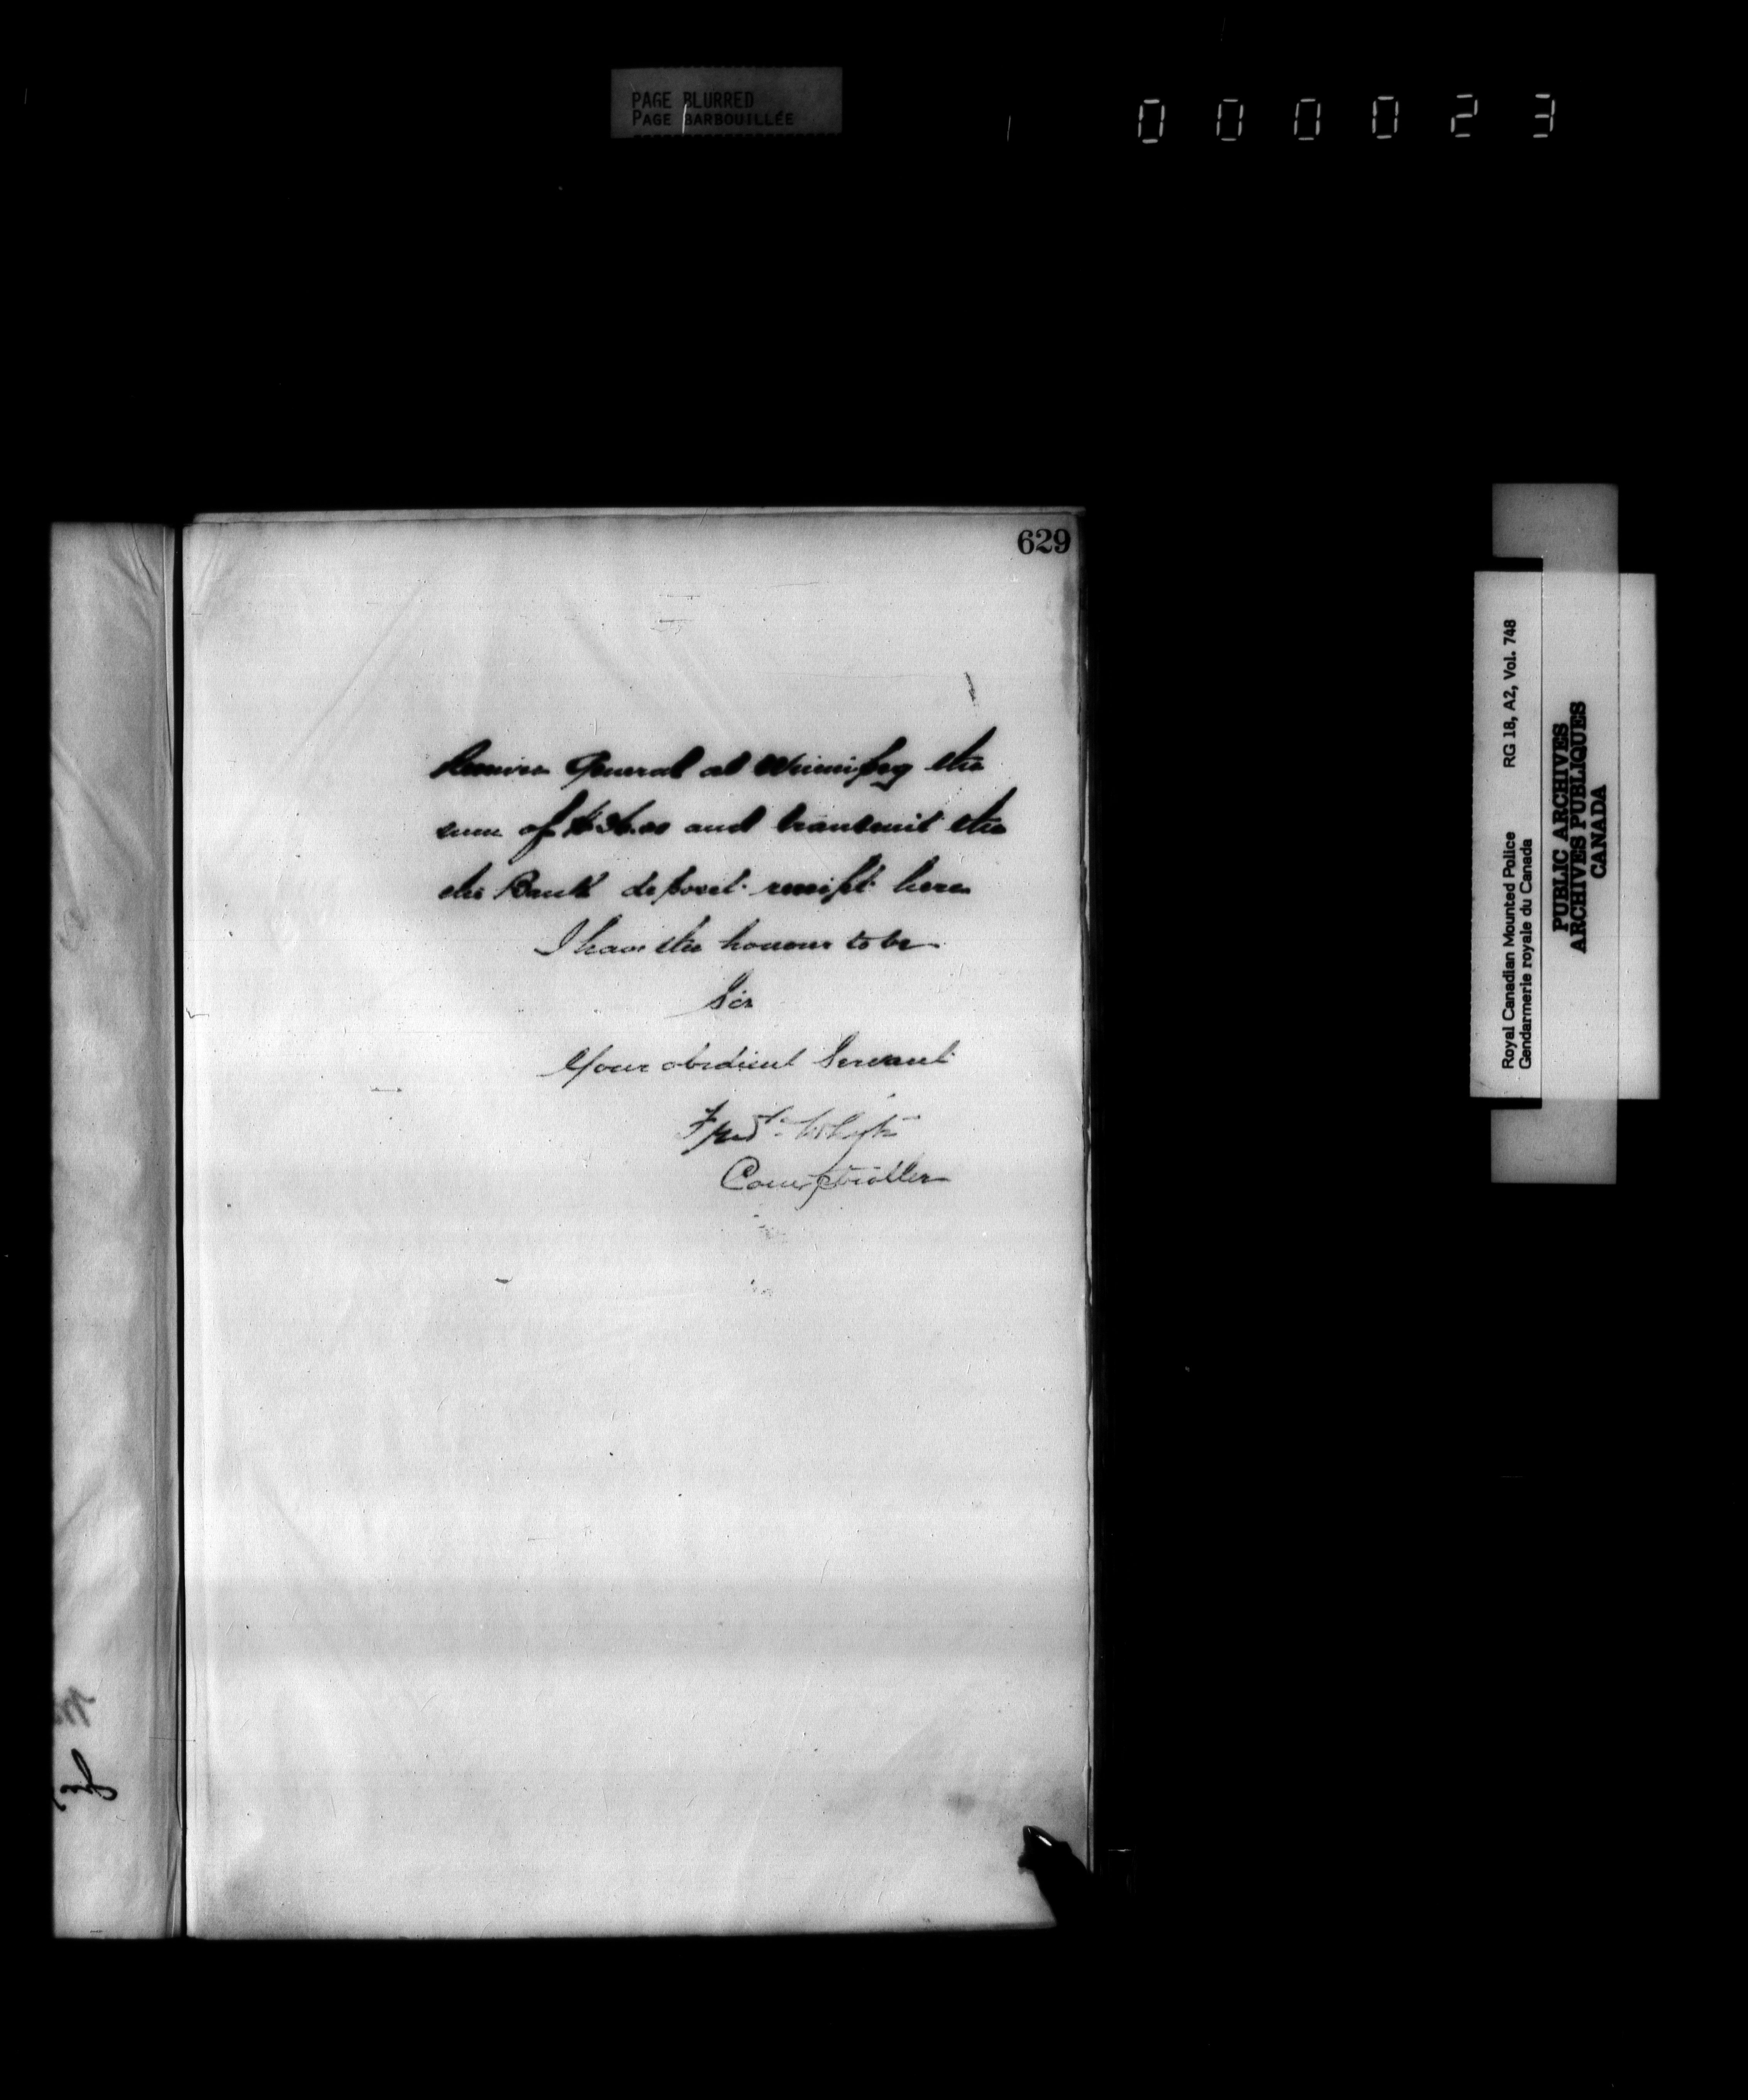 PAGE BLURRED
PAGE BARBOUILLÉE
000023
629
Receiver General at Winnipeg the
sum of and transmit the
the Bank deposit receipt here
I have the honour to be
Sir
Your obedient Servant
Fred. White
Comptroller
Royal Canadian Mounted Police RG 18, A2, Vol. 748
Gendarmerie royale du Canada
PUBLIC ARCHIVES
ARCHIVES PUBLIQUES
CANADA